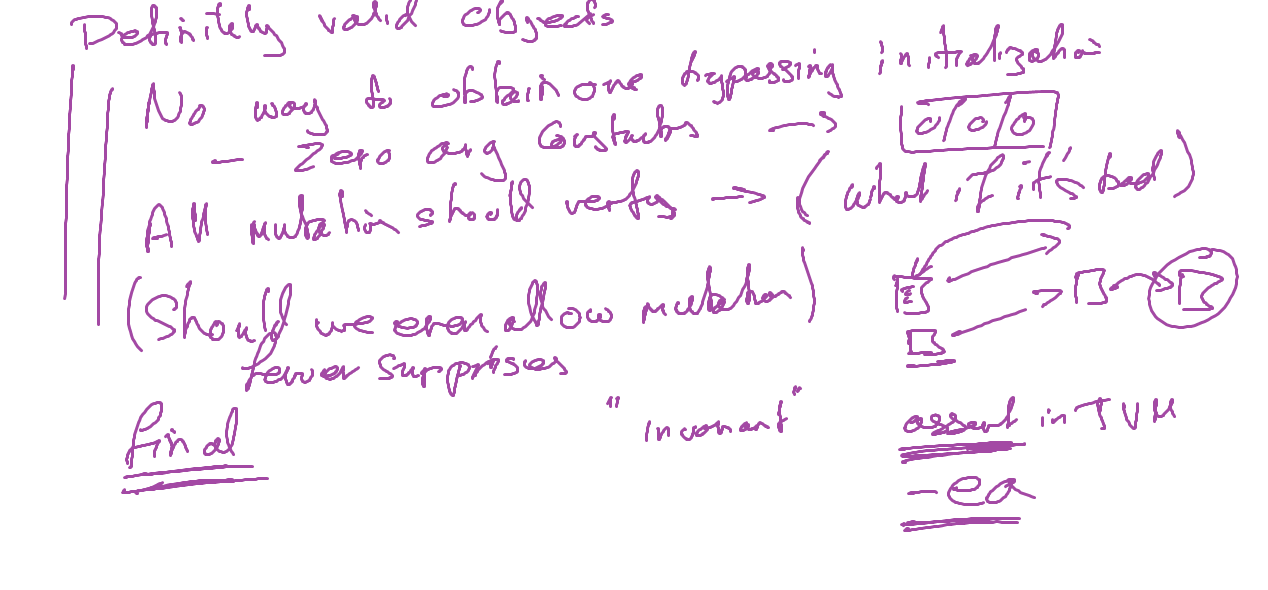 Definitely valid objects
No way to obtain one bypassing initialization
- Zero arg Constuctos → 0/0/0
All mutation should verify → (what if it's bad)
(Should we even allow mutation)
fewer surprises
final
"invariant"
assert in JVM
-ea